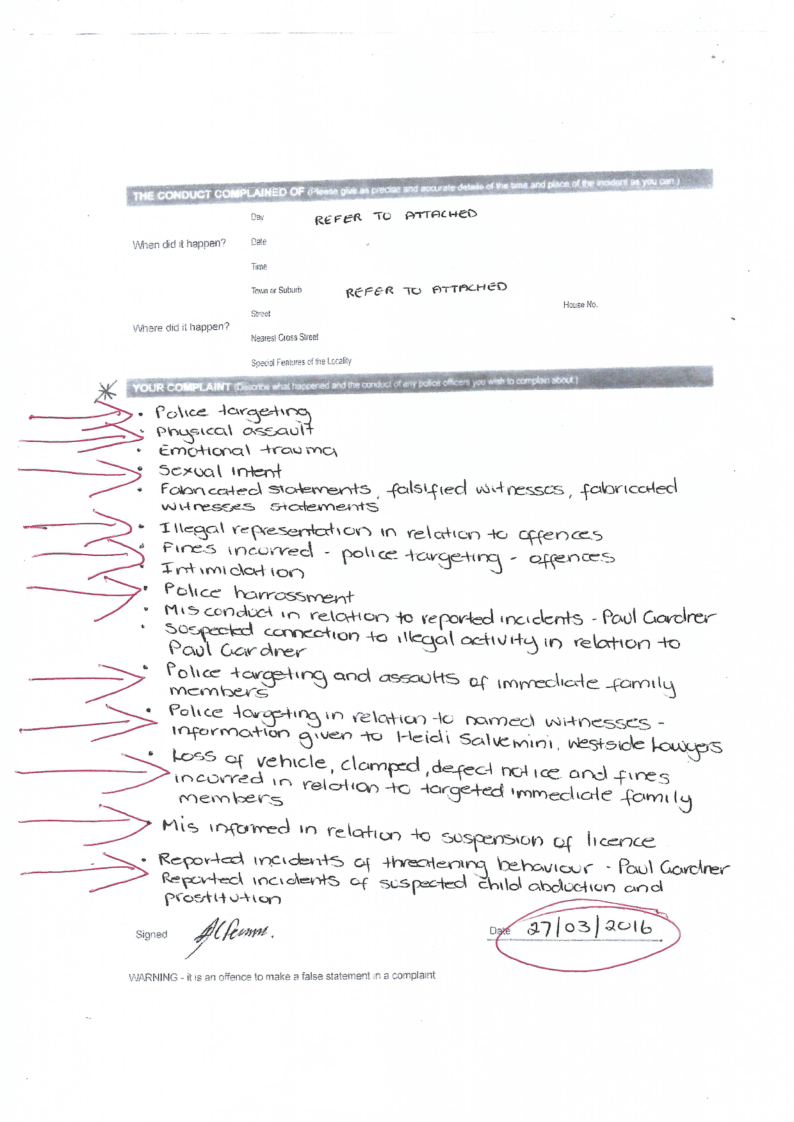 THE CONDUCT COMPLAINED OF (Please give as precise and accurate details of the time and place of the incident as you can.)
Day REFER TO ATTACHED
When did it happen? Date
Time
Town or Suburb REFER TO ATTACHED
Street House No.
Where did it happen?
Nearest Cross Street
Special Features of the Locality
YOUR COMPLAINT (Describe what happened and the conduct of any police officers you wish to complain about.)
• Police targeting
• Physical assault
• Emotional trauma
• Sexual intent
• Fabricated statements, falsified witnesses, fabricated
witnesses statements
• Illegal representation in relation to offences
• Fines incurred - police targeting - offences
• Intimidation
• Police harrassment
• Misconduct in relation to reported incidents - Paul Gardner
• Suspected connection to illegal activity in relation to
Paul Gardner
• Police targeting and assaults of immediate family
members
• Police targeting in relation to named witnesses -
information given to Heidi Salvemini, Westside Lawyers
• Loss of vehicle, clamped, defect notice and fines
incurred in relation to targeted immediate family
members
• Mis informed in relation to suspension of licence
• Reported incidents of threatening behaviour - Paul Gardner
Reported incidents of suspected child abduction and
prostitution
Signed Date 27/03/2016
WARNING - it is an offence to make a false statement in a complaint